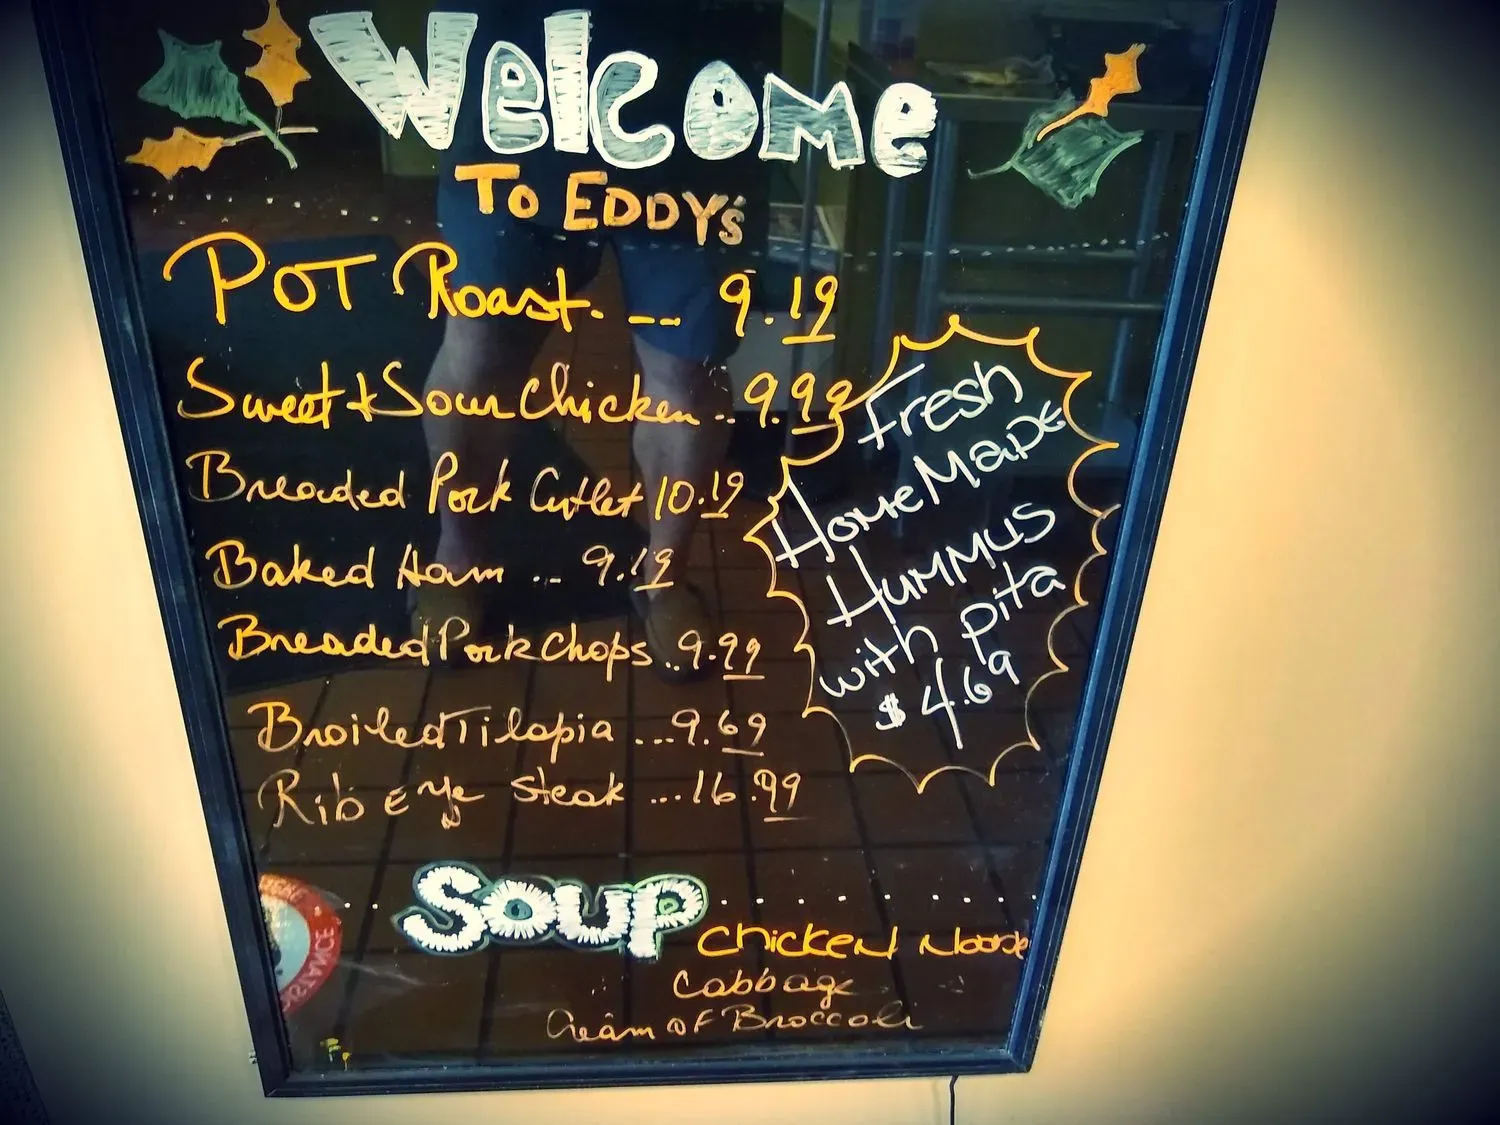 Welcome
To EDDY's
POT Roast. -- 9.19
Sweet & Sour Chicken .. 9.99
Breaded Pork Cutlet 10.19
Baked Ham ... 9.19
Breaded Pork Chops .. 9.99
Broiled Tilapia ... 9.69
Rib Eye Steak ... 16.99
Fresh
HomeMade
Hummus
with pita
$4.69
Soup
Chicken Noodle
Cabbage
Cream of Broccoli